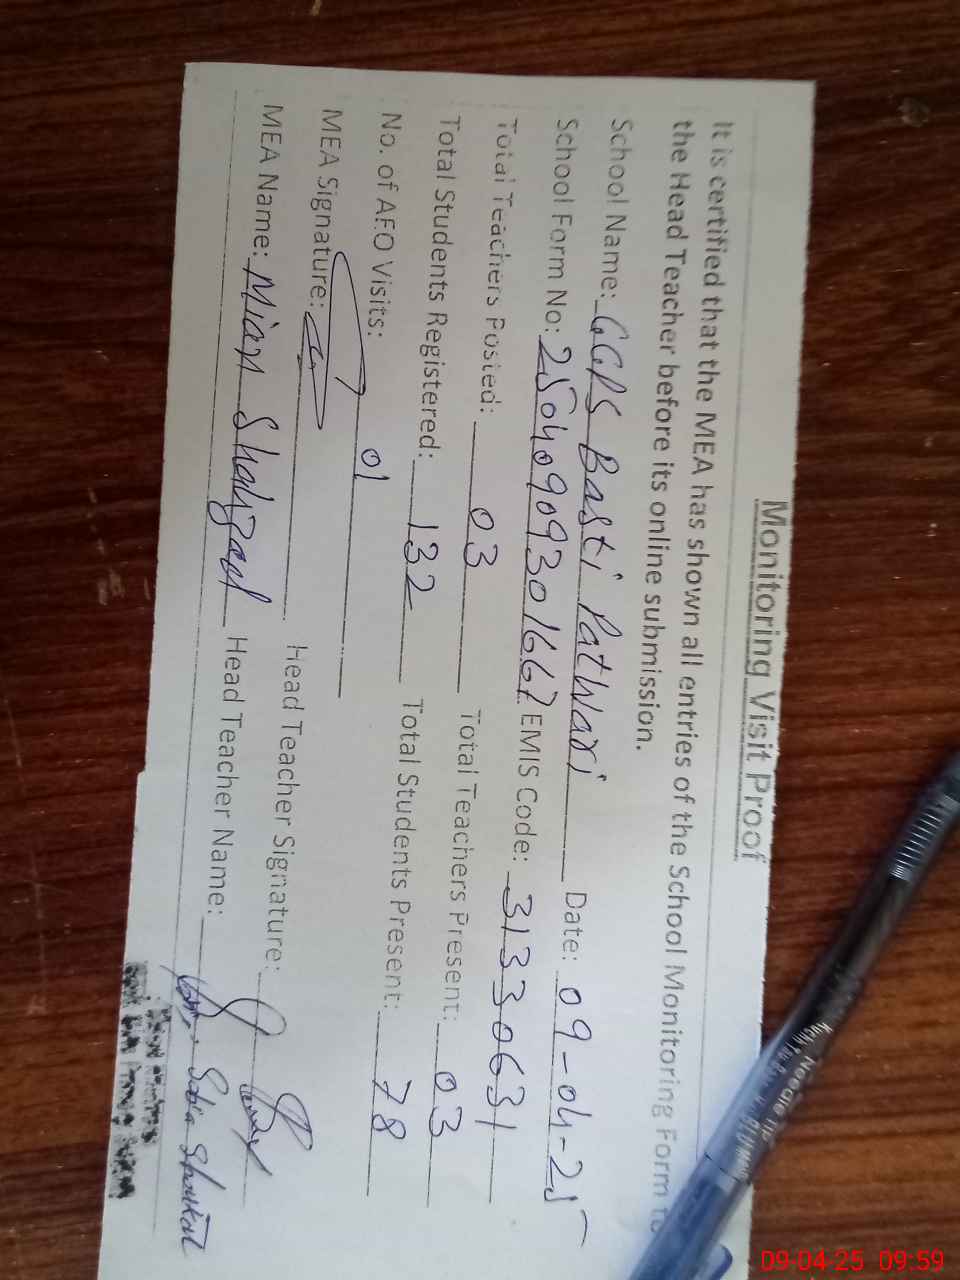 Monitoring Visit Proof
It is certified that the MEA has shown all entries of the School Monitoring Form to
the Head Teacher before its online submission.
School Name: GGPS Basti Patwari Date: 09-04-25
School Form No: 25040909301667 EMIS Code: 31330631
Total Teachers Posted: 03 Total Teachers Present: 03
Total Students Registered: 132 Total Students Present: 78
No. of AEO Visits: 01
MEA Signature: Head Teacher Signature:
MEA Name: Mian Shahzad Head Teacher Name: Sobia Shoukat
Needle Tip
09-04-25 09:59